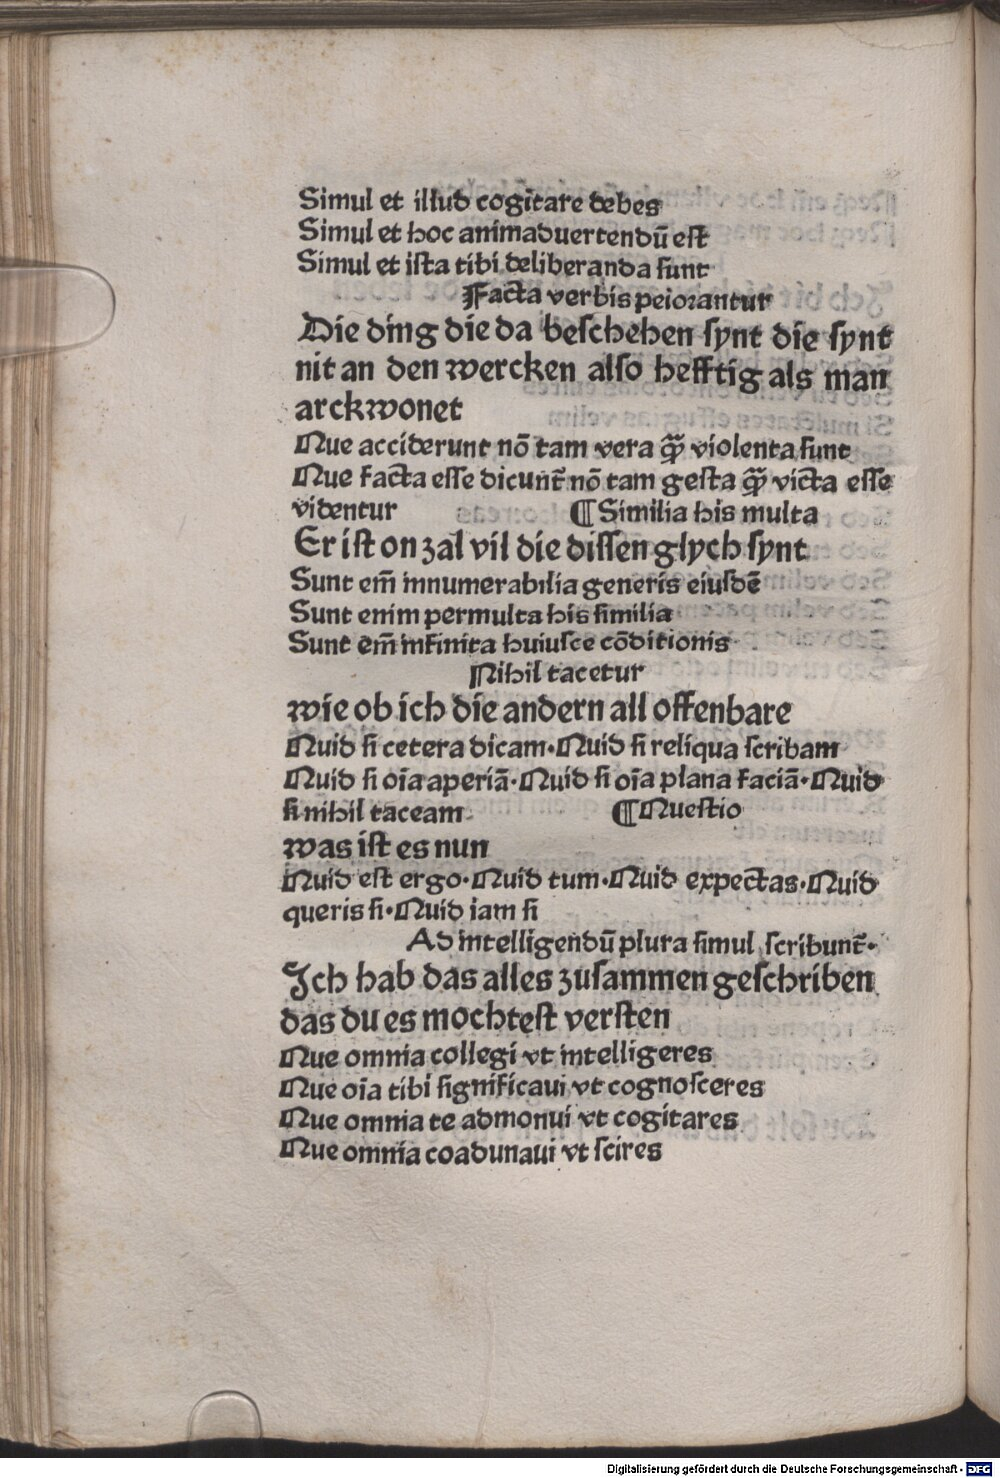 Simul et illud cogitare debes
Simul et hoc animaduertendū eſt
Simul et iſta tibi deliberanda ſunt
Facta verbis peiorantur
Die ding die da beſchehen ſynt die ſynt
nit an den wercken alſo hefftig als man
arckwonet
Que acciderunt nō tam vera q̄ꝫ violenta ſunt
Que facta eſſe dicunt̄ nō tam geſta q̄ꝫ victa eſſe
videntur ¶ Similia his multa
Er iſt on zal vil die diſſen glych ſynt
Sunt em̄ innumerabilia generis eiuſdē
Sunt enim permulta his ſimilia
Sunt em̄ infinita huiuſce cōditionis
Nihil tacetur
wie ob ich die andern all offenbare
Quid ſi cetera dicam. Quid ſi reliqua ſcribam
Quid ſi oīa aperiā. Quid ſi oīa plana faciā. Quid
ſi nihil taceam ¶ Queſtio
was iſt es nun
Quid eſt ergo. Quid tum. Quid expectas. Quid
queris ſi. Quid iam ſi
Ad intelligendū plura ſimul ſcribunt̄.
Ich hab das alles zuſammen geſchriben
das du es mochteſt verſten
Que omnia collegi vt intelligeres
Que oīa tibi ſignificaui vt cognoſceres
Que omnia te admonui vt cogitares
Que omnia coadunaui vt ſcires
Digitalisierung gefördert durch die Deutsche Forschungsgemeinschaft - DFG